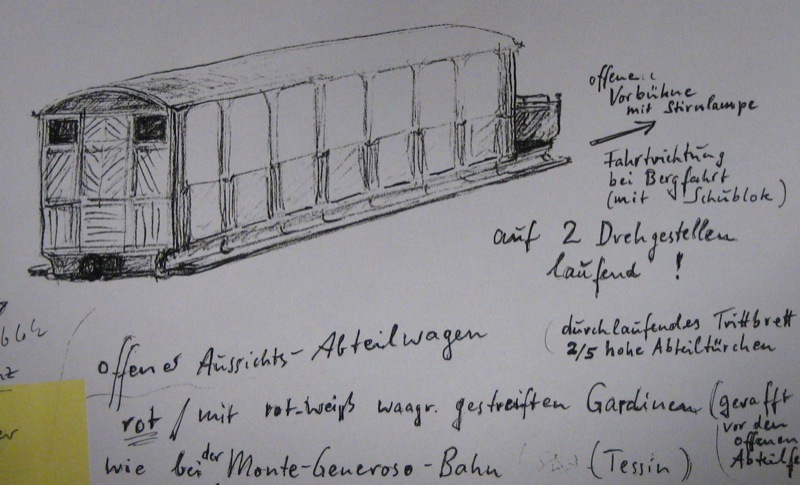 offene
Vorbühne
mit Stirnlampe
Fahrtrichtung
bei Bergfahrt
(mit Schublok)
auf 2 Drehgestellen
laufend !
(durchlaufendes Trittbrett
2/5 hohe Abteiltürchen
offener Aussichts-Abteilwagen
rot / mit rot-weiß waagr. gestreiften Gardinen (gerafft
vor den
offenen
wie bei der Monte-Generoso-Bahn (Tessin)